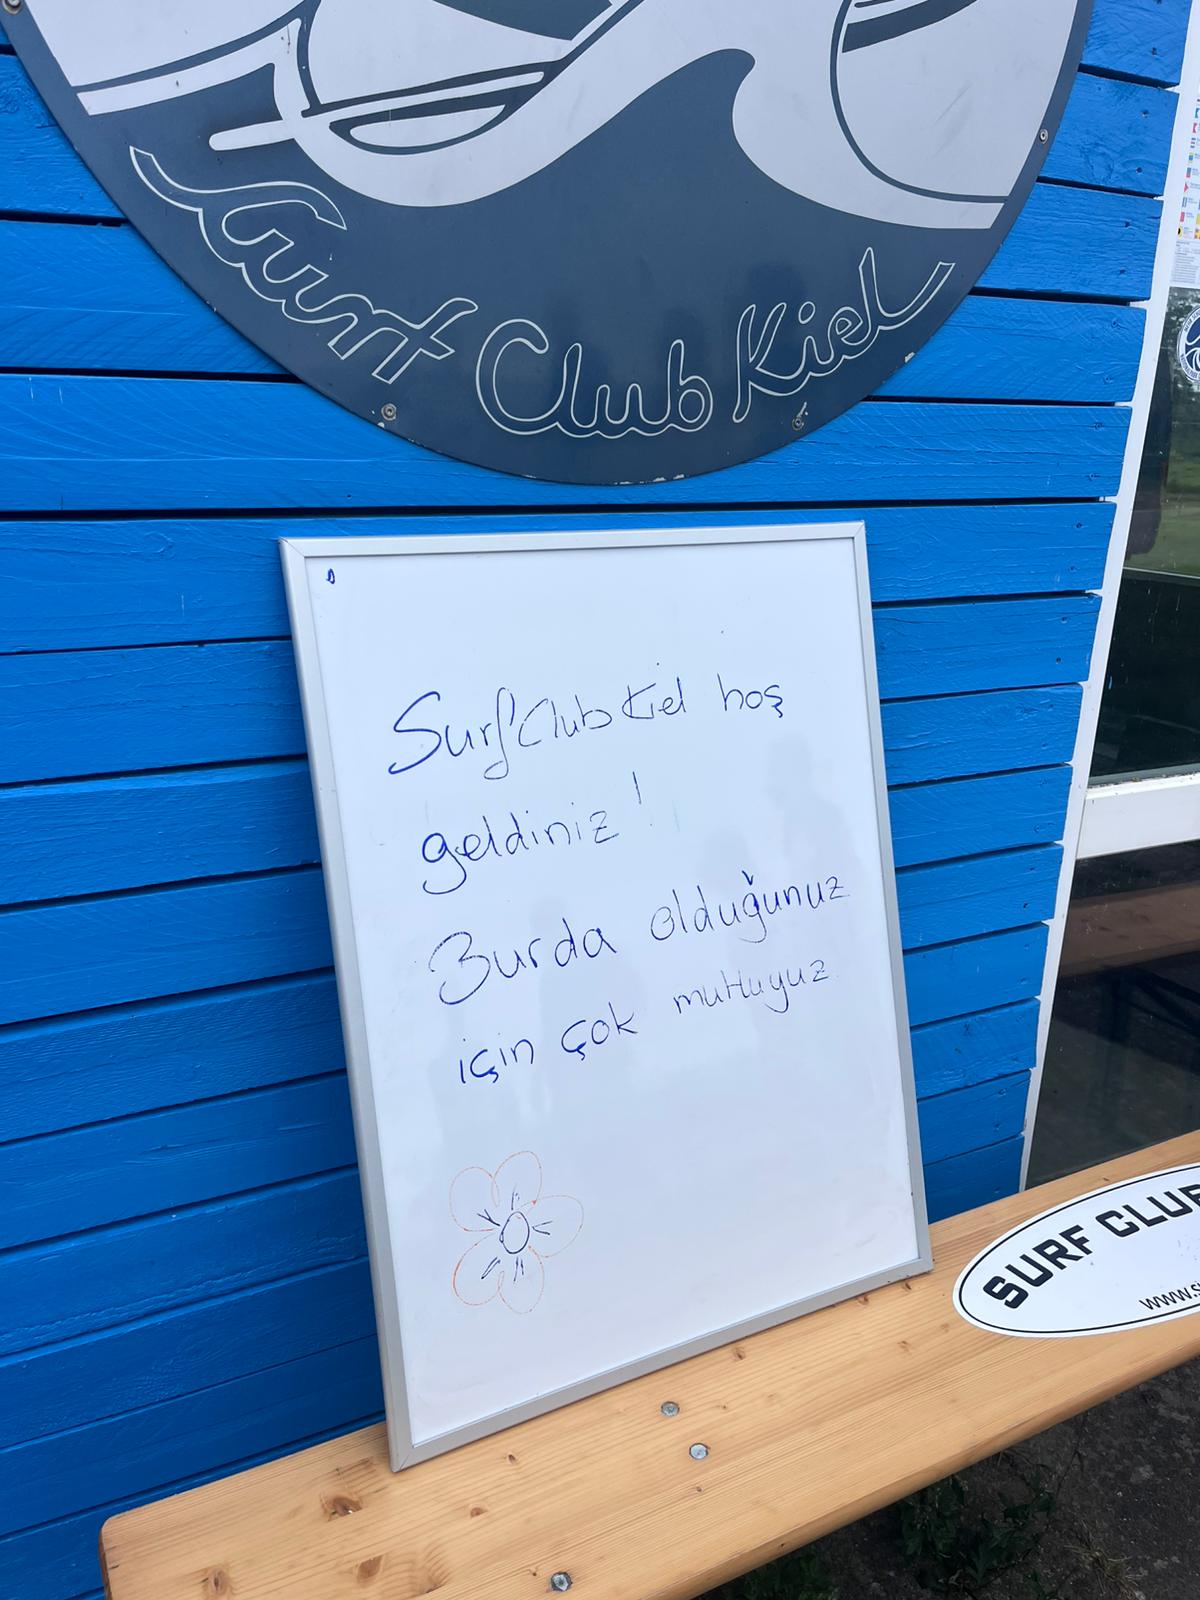 Surf Club Kiel
Surf Club Kiel hoş
geldiniz!
Burda olduğunuz
için çok mutluyuz
SURF CLUB
www.s